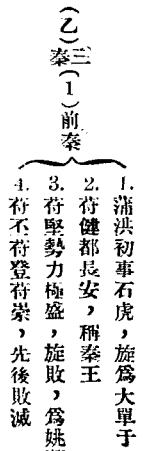 (乙)三秦(1)前秦
1.蒲洪初事石虎，旋爲大單于
2.苻健都長安，稱秦王
3.苻堅勢力極盛，旋敗，爲姚
4.苻不苻登苻崇，先後敗滅